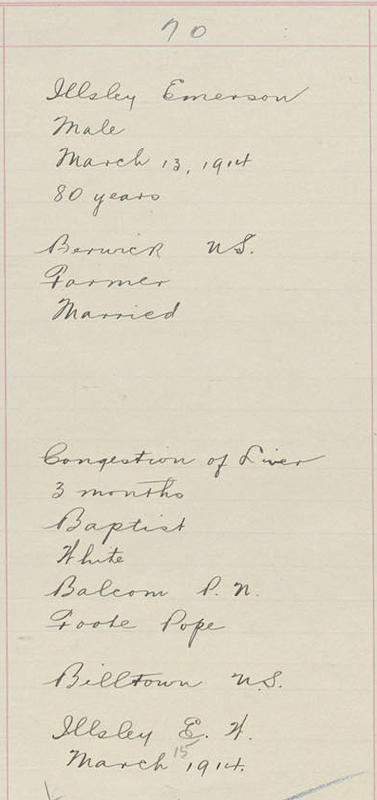 70
Illsley Emerson
Male
March 13, 1914
80 years
Berwick N.S.
Farmer
Married
Congestion of Liver
3 months
Baptist
White
Balcom P. N.
Foote Pope
Billtown N.S.
Illsley E. W.
March 15 1914.